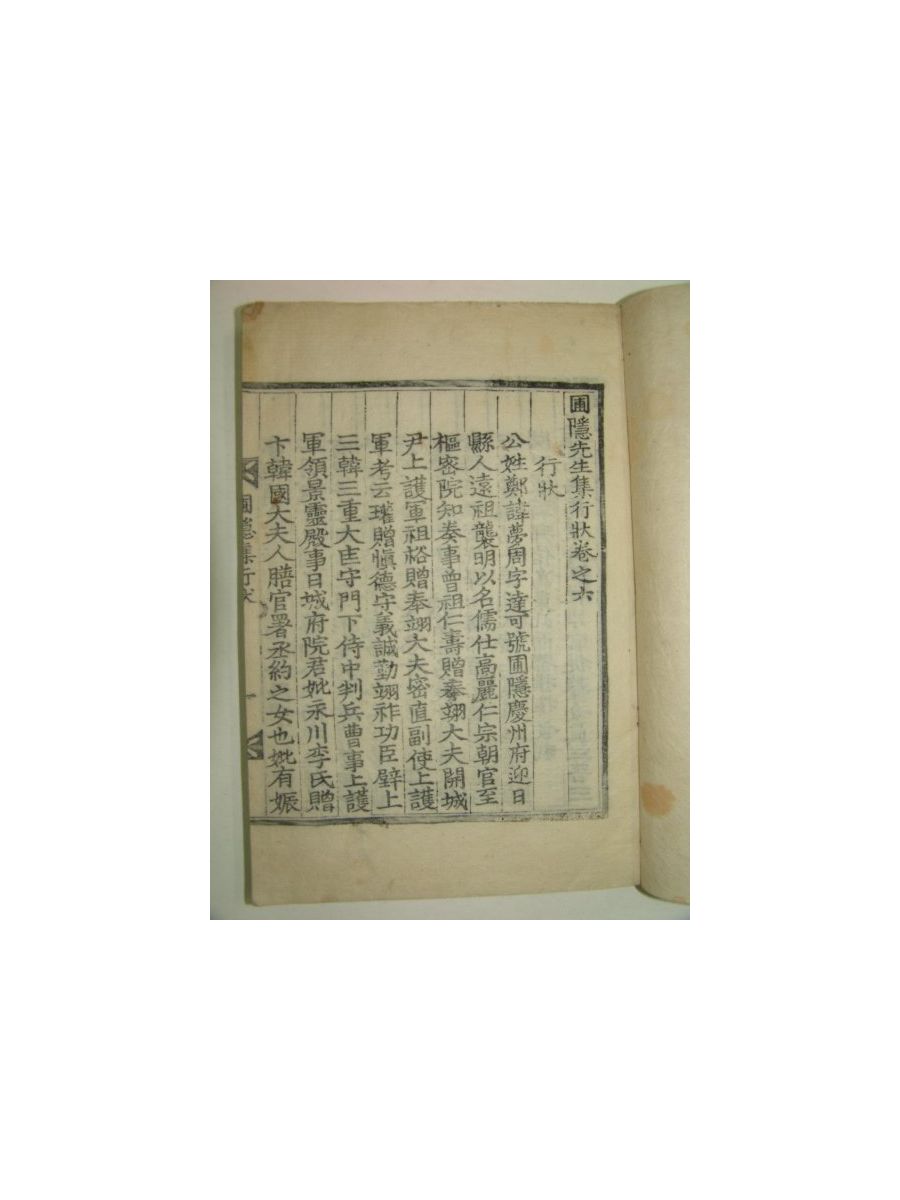 圃隱先生集行狀卷之六
行狀
公姓鄭諱夢周字達可號圃隱慶州府迎日
縣人遠祖襲明以名儒仕高麗仁宗朝官至
樞密院知奏事曾祖仁壽贈奉翊大夫開城
尹上護軍祖裕贈奉翊大夫密直副使上護
軍考云瓘贈愼德守義誠勤翊祚功臣壁上
三韓三重大匡守門下侍中判兵曹事上護
軍領景靈殿事日城府院君妣永川李氏贈
卞韓國大夫人膳官署丞約之女也妣有娠
圃隱集行狀 一